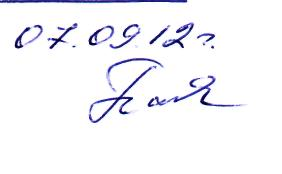 07.09.12г.